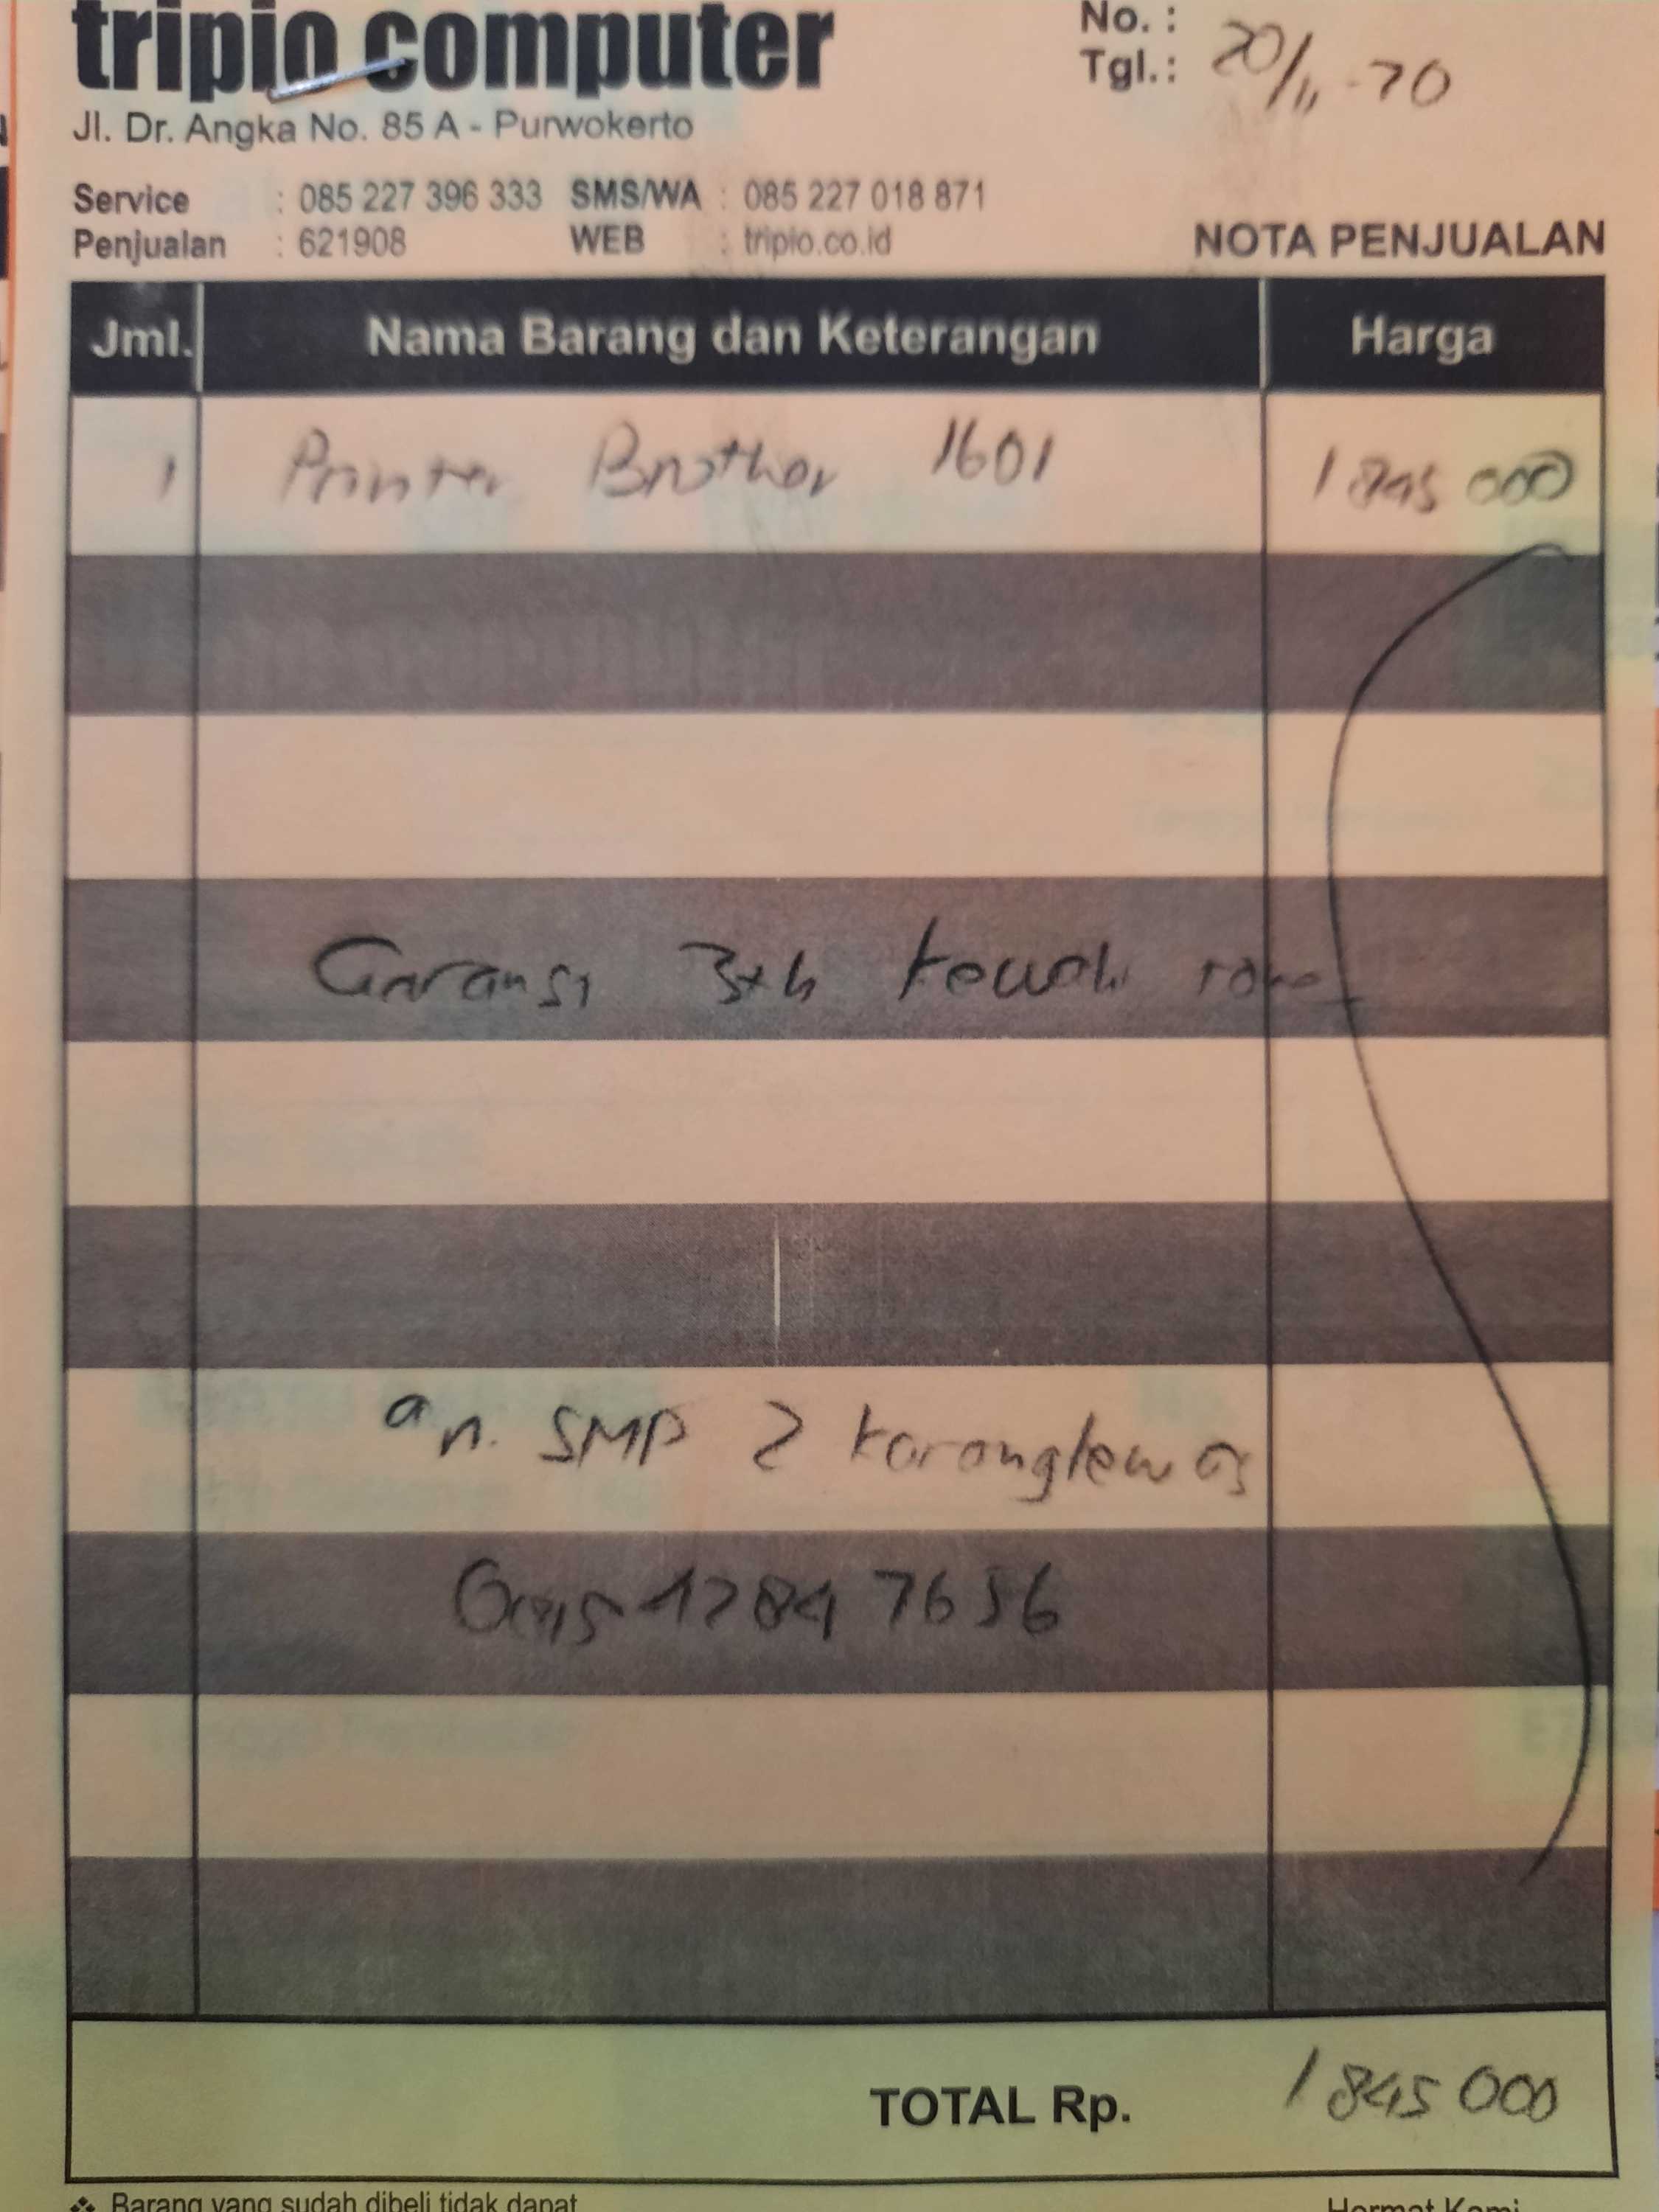 tripio computer
No. :
Tgl.: 20/11-20
Jl. Dr. Angka No. 85 A - Purwokerto
Service : 085 227 396 333 SMS/WA : 085 227 018 871
Penjualan : 621908 WEB : tripio.co.id
NOTA PENJUALAN
Jml. Nama Barang dan Keterangan Harga
1 Printer Brother 1601 1 845 000
Garansi 3th
an. SMP 2 Karanglewas
7656
TOTAL Rp. 1 845 000
❖ Barang yang sudah dibeli tidak dapat
Hormat Kami